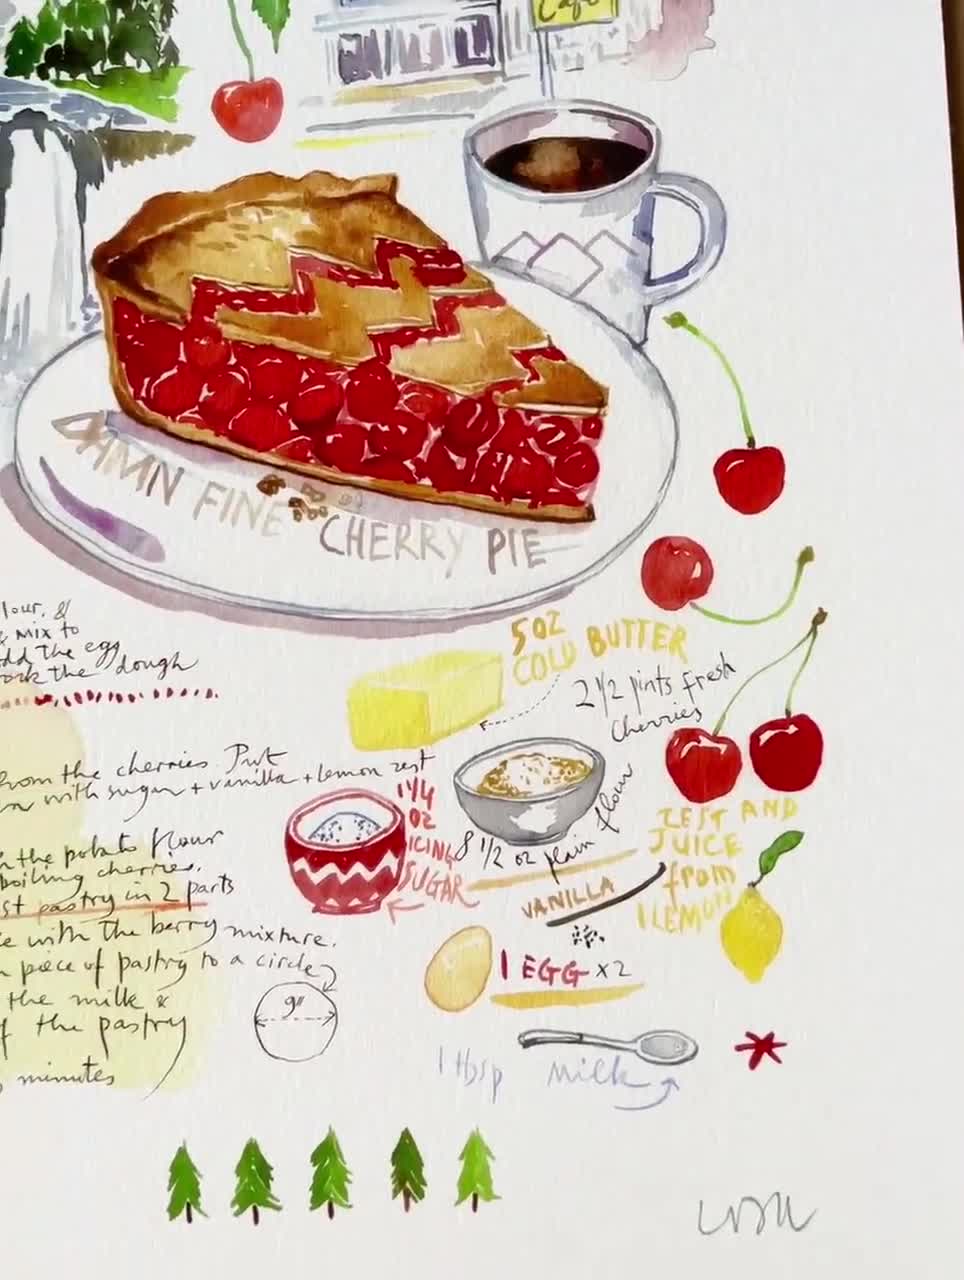 Cafe
DAMN FINE CHERRY PIE
lour, &
& mix to
dd the egg
ork the dough
5 OZ
COLD BUTTER
2 1/2 pints fresh
Cherries
from the cherries. Put
with sugar + vanilla + lemon zest
1 1/4
OZ
ICING
SUGAR
8 1/2 oz plain flour
ZEST AND
JUICE
from
1 LEMON
the potato flour
boiling cherries.
st pastry in 2 parts
e with the berry mixture.
piece of pastry to a circle
9"
the milk &
f the pastry
minutes
VANILLA
1 EGG x2
1 tbsp milk